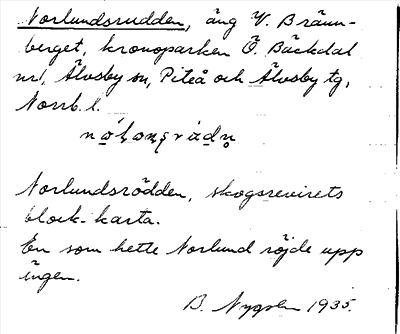 Norlundsrudden, äng V. Bränn-
berget, kronoparken Ö. Bäckdal
nr 1, Älvsby sn, Piteå och Älvsby tg,
Norrb. l.
Norlundsrödden, skogsrevirets
block-karta.
En som hette Norlund röjde upp
ängen.
B. Nygren 1935.